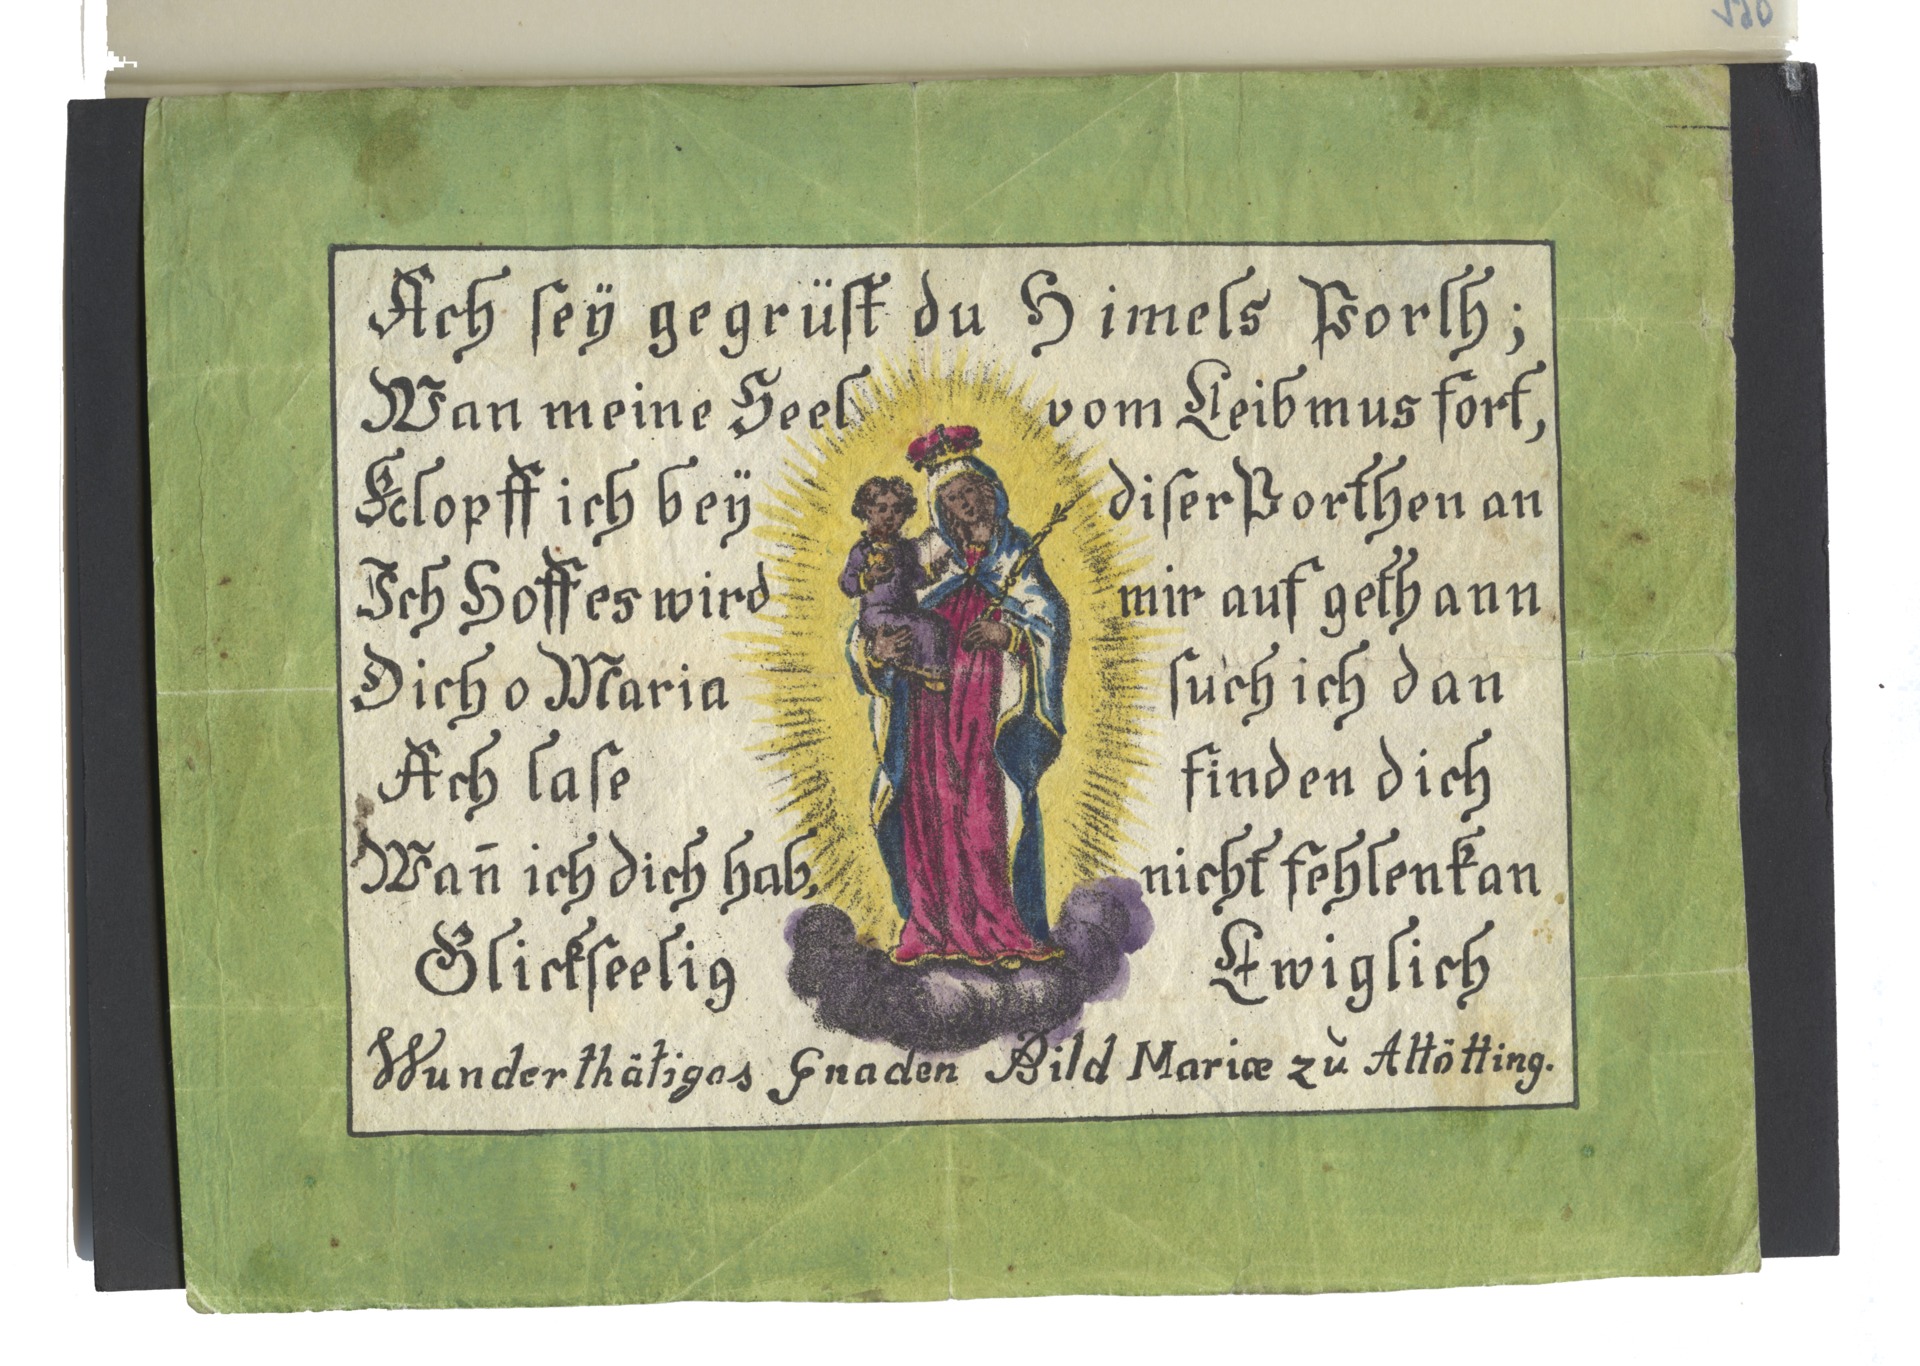 Ach seÿ gegrüst du Himels Porth;
Wan meine Seel vom Leib mus fort,
Klopff ich beÿ diser Porthen an
Ich Hoff es wird mir auf gethann
Dich o Maria such ich dan
Ach lase finden dich
Wan̄ ich dich hab, nicht fehlen kan
Glickseelig Ewiglich
Wunderthätiges Gnaden Bild Mariæ zu Altötting.